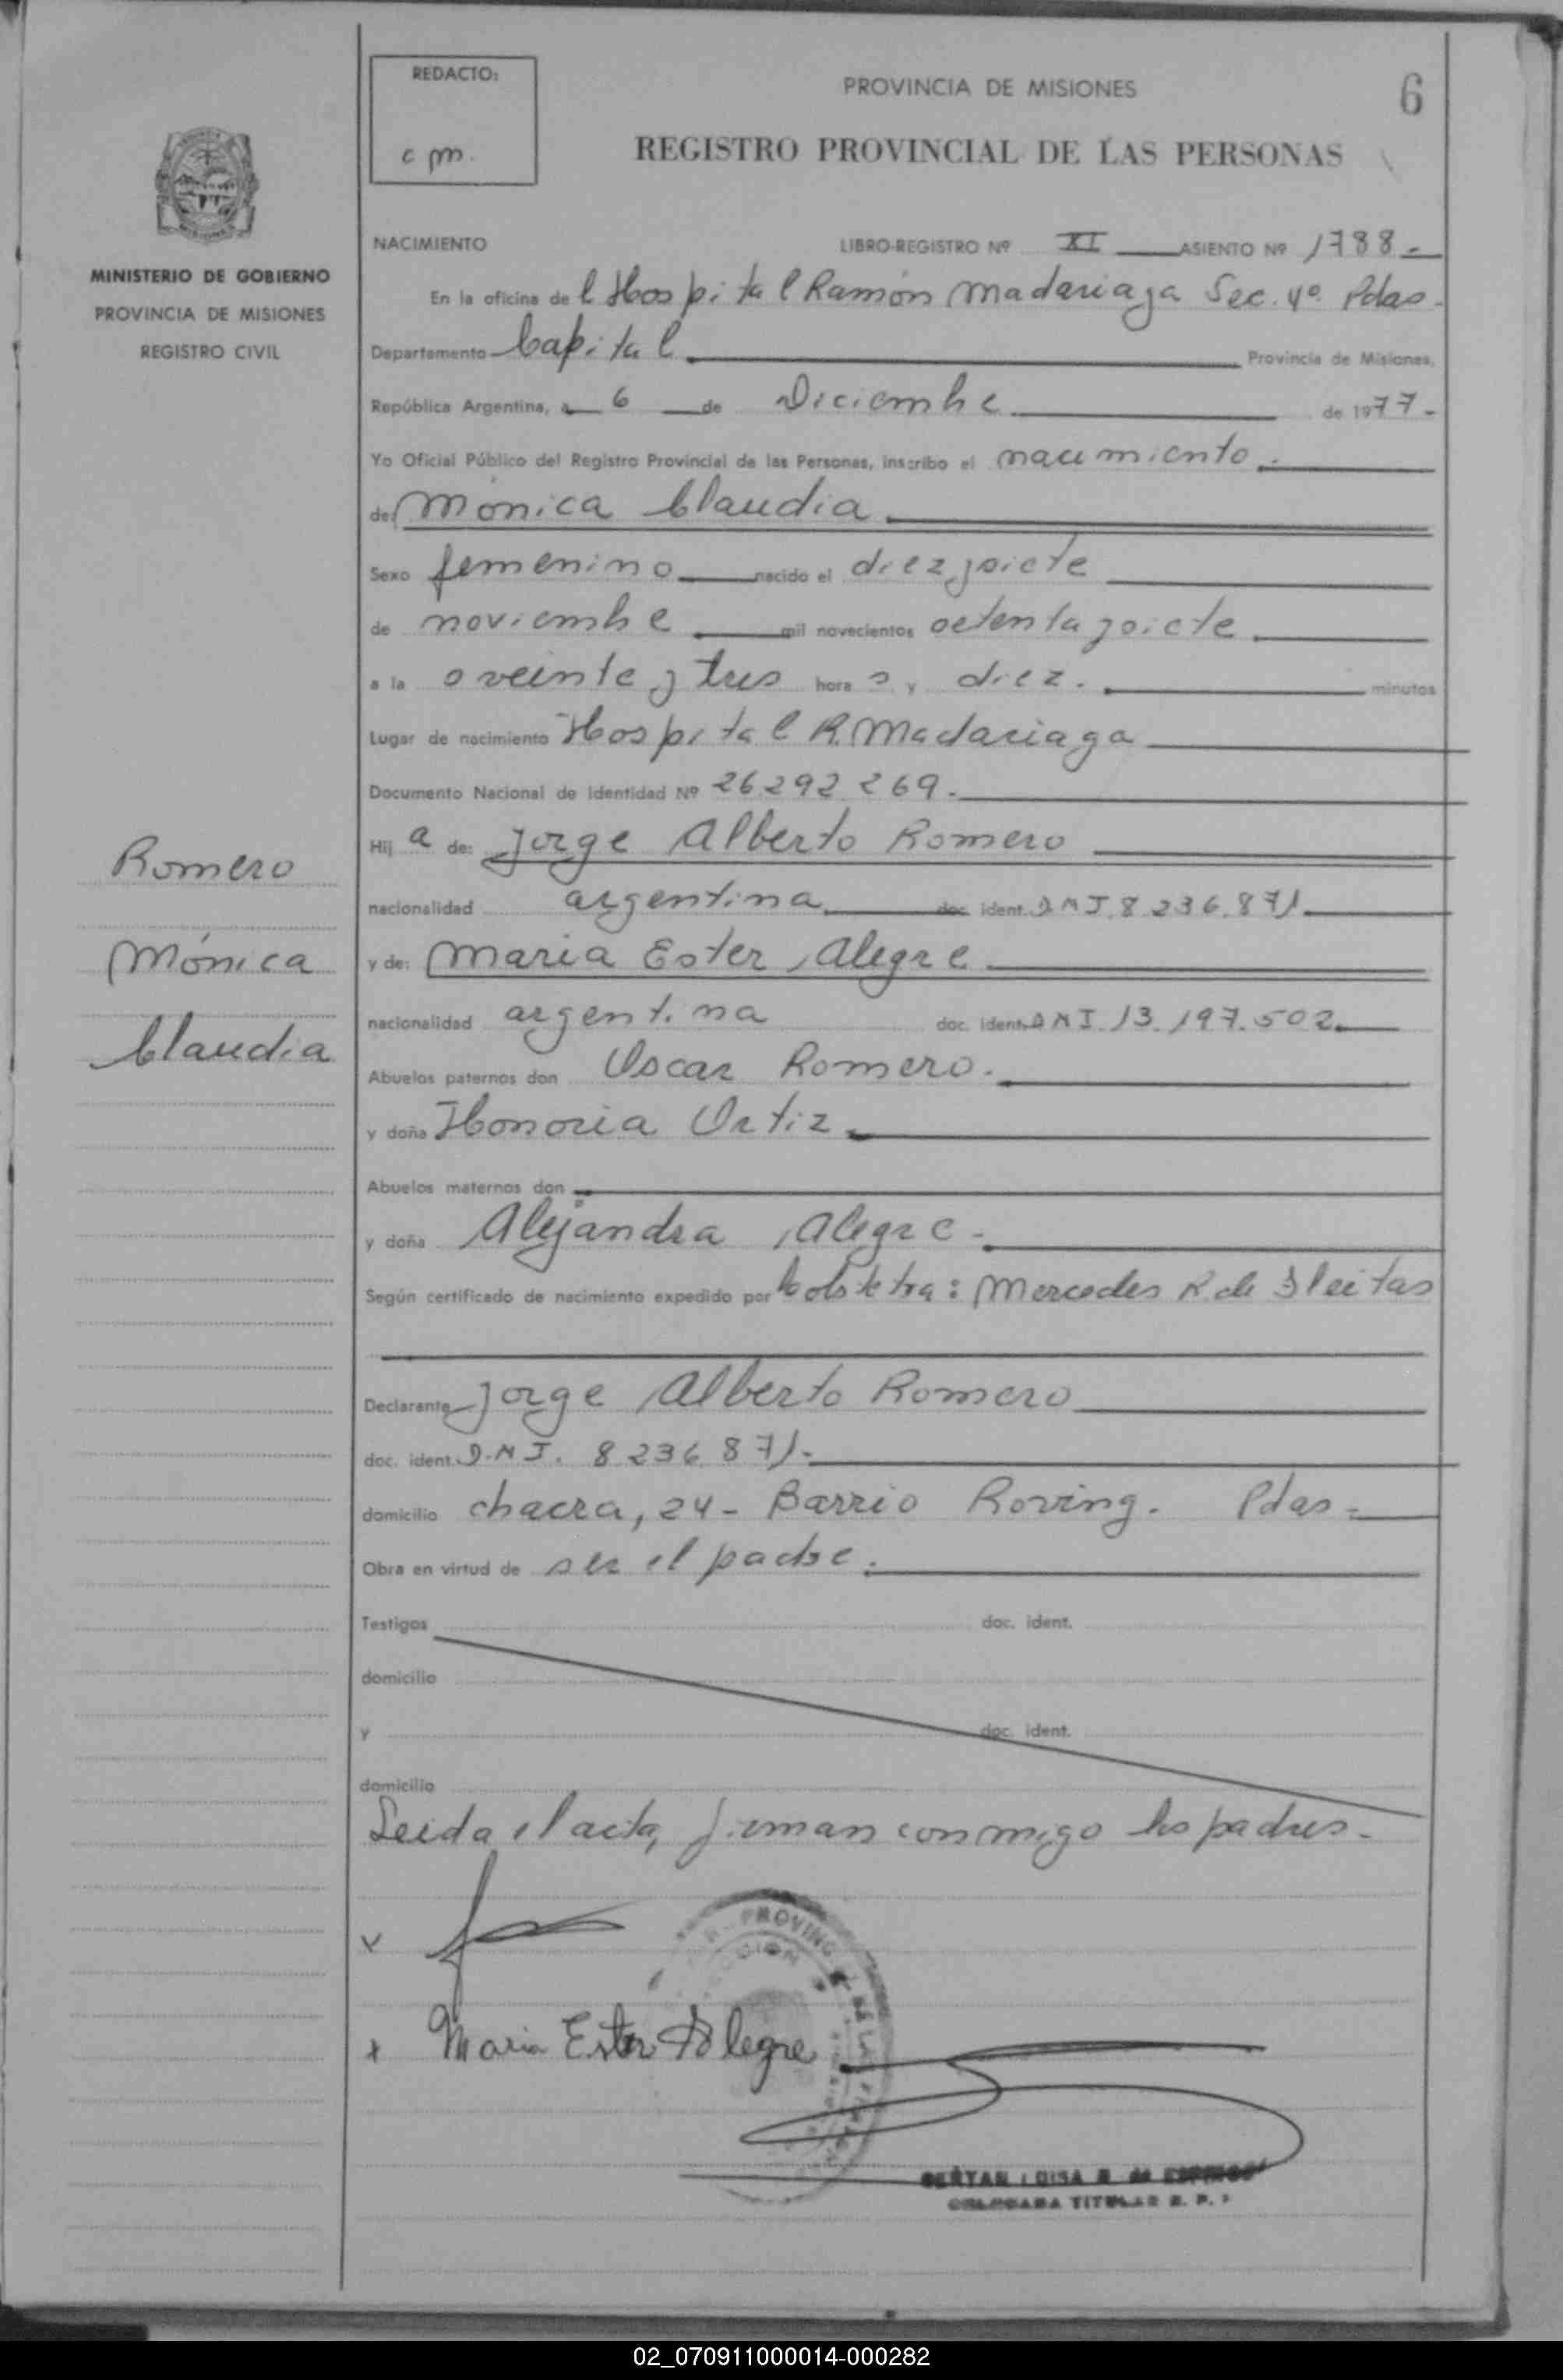 REDACTO:
c m.
PROVINCIA DE MISIONES
6
REGISTRO PROVINCIAL DE LAS PERSONAS
MINISTERIO DE GOBIERNO
PROVINCIA DE MISIONES
REGISTRO CIVIL
NACIMIENTO LIBRO-REGISTRO Nº XI ASIENTO Nº 1788-
En la oficina del Hospital Ramón Madariaga Sec. 4º Pdas-
Departamento Capital Provincia de Misiones,
República Argentina, a 6 de Diciembre de 1977-
Yo Oficial Público del Registro Provincial de las Personas, inscribo el nacimiento.
de Mónica Claudia
Sexo femenino nacido el diez y siete
de noviembre mil novecientos setenta y siete
a las veinte y tres horas y diez. minutos
Lugar de nacimiento Hospital R. Madariaga
Documento Nacional de Identidad Nº 26.292.269.
Hija de: Jorge Alberto Romero
nacionalidad argentina doc. ident. D.N.I. 8.236.871
y de: Maria Ester Alegre
nacionalidad argentina doc. ident. D.N.I. 13.197.502
Abuelos paternos don Oscar Romero.
y doña Honoria Ortiz
Abuelos maternos don
y doña Alejandra Alegre-
Según certificado de nacimiento expedido por obstetra: Mercedes R. de Fleitas
Declarante Jorge Alberto Romero
doc. ident. D.N.I. 8.236.871-
domicilio chacra, 24- Barrio Roving. Pdas-
Obra en virtud de ser el padre.
Testigos doc. ident.
domicilio
y doc. ident.
domicilio
Leida el acta, firman conmigo los padres-
Romero
Mónica
Claudia
Maria Ester Alegre
TITULAR R. P.
02_070911000014-000282